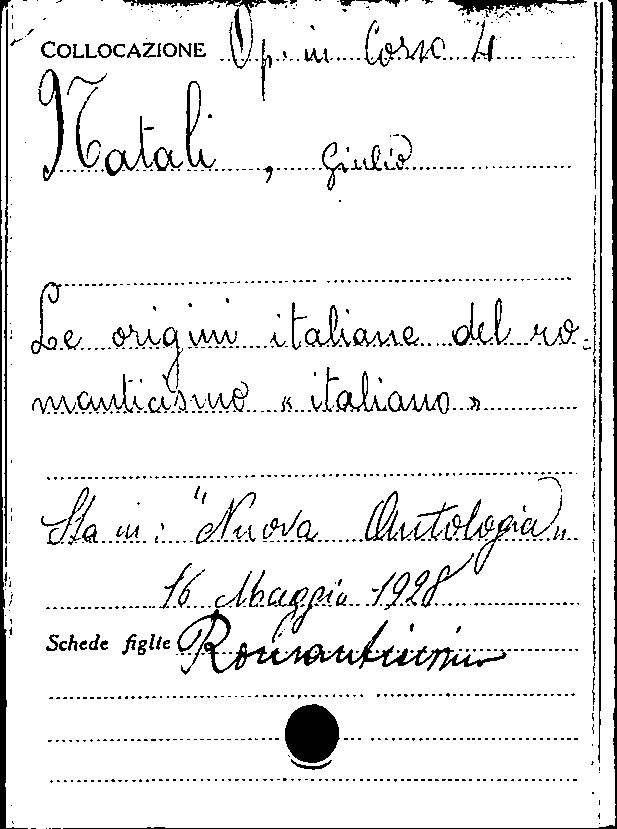 COLLOCAZIONE Op. in Corso 4
Natali, Giulio
Le origini italiane del ro-
manticismo « italiano »
Sta in: "Nuova Antologia„
16 Maggio 1928
Schede figlie Romanticismo